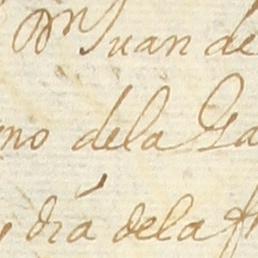 Dn Juan de
no dela
dia dela